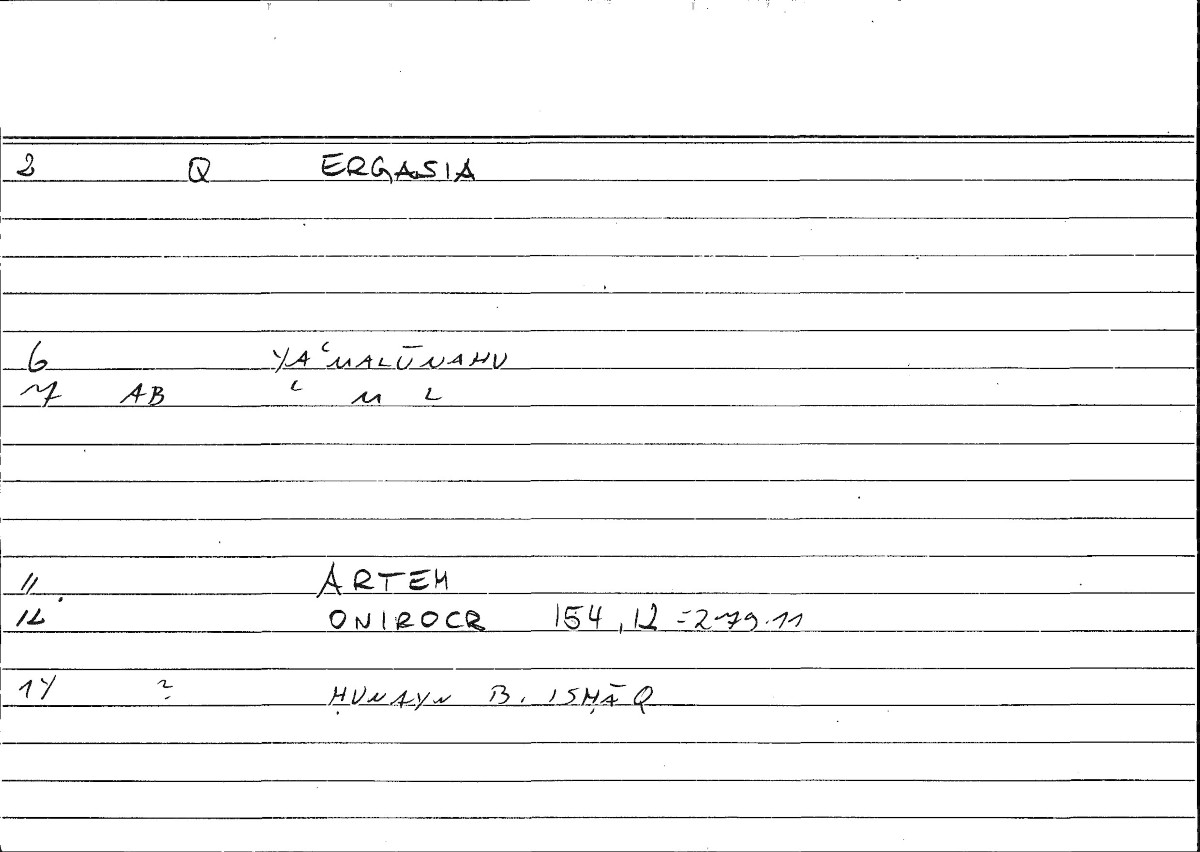 2 Q ERGASIA
6 YAʿMALŪNAHU
7 AB ʿ M L
11 ARTEM
12 ONIROCR 154,12 = 279.11
14 ? ḤUNAYN B. ISḤĀQ